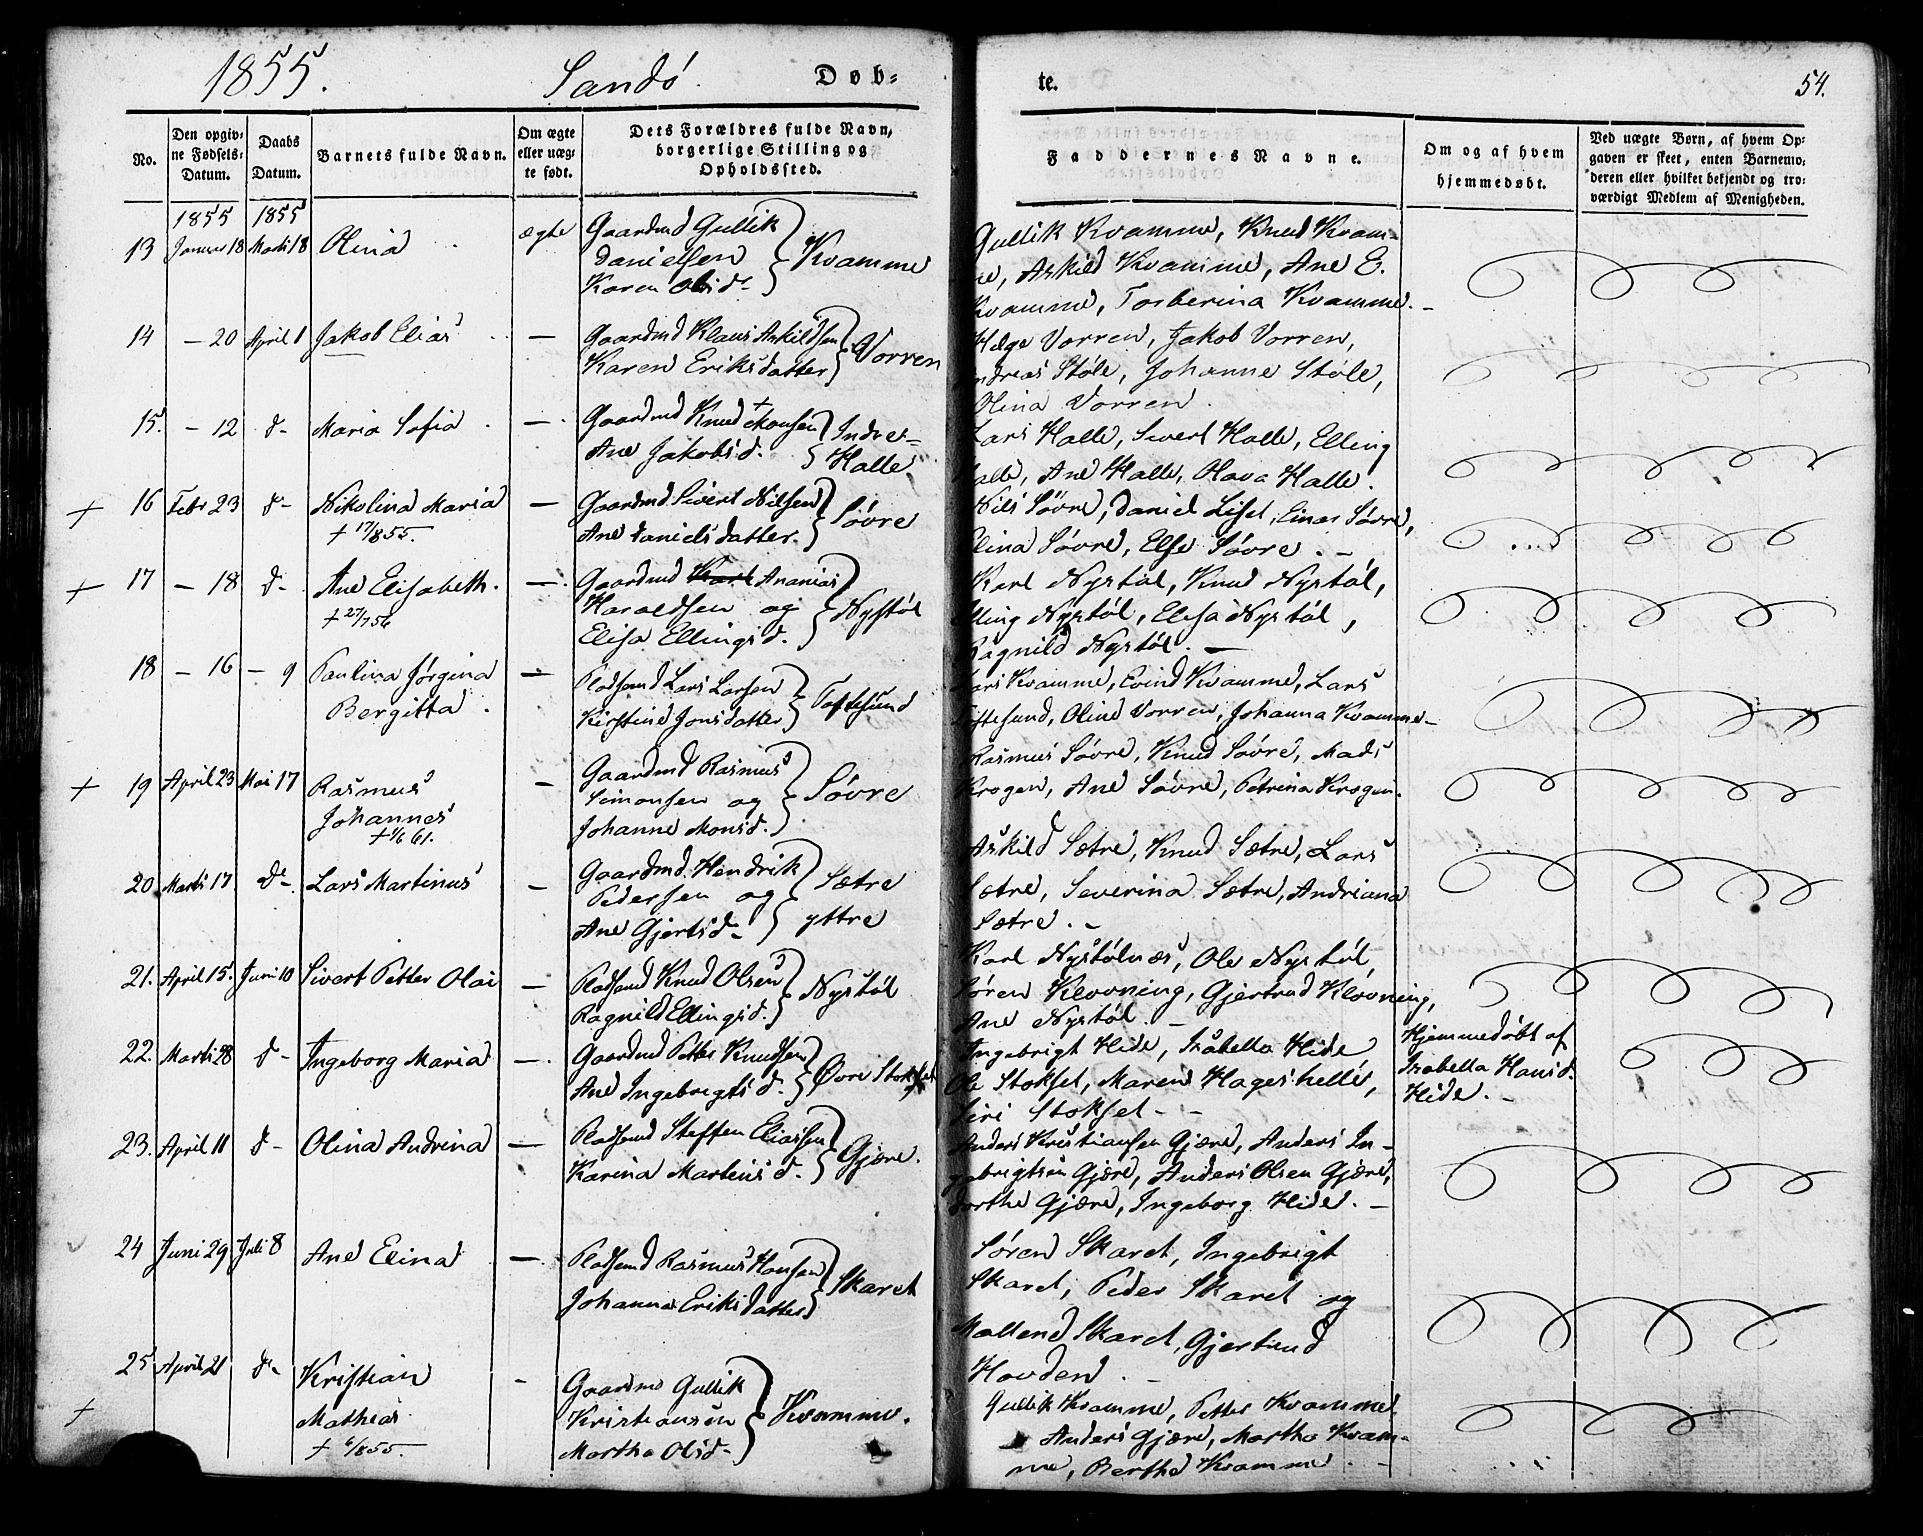 1855. Sandö. Døb-
te. 54.
No.
Den opgiv-
ne Fødsels-
Datum.
Daabs
Datum.
Barnets fulde Navn.
Om ægte
eller uæg-
te født.
Dets Forældres fulde Navn,
borgerlige Stilling og
Opholdssted.
Faddernes Navne.
Om og af hvem
hjemmedøbt.
Ved uægte Børn, af hvem Op-
gaven er skeet, enten Barnemo-
deren eller hvilket bekjendt og tro-
værdigt Medlem af Menigheden.
1855 1855
13 Januar 18 Marti 18 Olina ægte Gaardmd Gullik
Danielsen
Karen Olsd- Kvamme
Gullik Kvamme, Knud Kvam-
me, Askild Kvamme, Ane E.
Kvamme, Torberina Kvamme.-
14 - 20 April 1 Jakob Elias - Gaardmd Klaus Askildsen
Karen Eriksdatter Vorren
Helge Vorren, Jakob Vorren,
Andreas Støle, Johanne Støle,
Olina Vorren.
15. - 12 d- Maria Sofia - Gaardmd Knud Monsen
Ane Jakobsd. Indre-
Halle
Lars Halle, Sivert Halle, Elling
Halle, Ane Halle, Olava Halle.
+ 16 Febr 23 d- Nikolina Maria - Gaardmd Sivert Nilsen
+ 17/8 55. Ane Danielsdatter. Søvre
Nils Søvre, Daniel Liset, Einar Søvre,
Elina Søvre, Else Søvre.-
+ 17 - 18 d- Ane Elisabeth. - Gaardmd Karl Ananias
+ 27/7 56 Haraldsen og
Elisa Ellingsd. Nystøl
Karl Nystøl, Knud Nystøl,
Elling Nystøl, Elisa Nystøl,
Ragnild Nystøl.-
18 - 16 - 9 Paulina Jørgina
Bergitta. - Pladsmd Lars Larsen
Kirstine Jonsdatter Toftesund
Lars Kvamme, Evind Kvamme, Lars
Toftesund, Oline Vorren, Johanna Kvamme-
+ 19 April 23 Mai 17 Rasmus
Johannes
+ 1/6 61. - Gaardmd Rasmus
Simonsen og
Johanne Monsd. Søvre
Rasmus Søvre, Knud Søvre, Mads
Krogen, Ane Søvre, Petrina Krogen.
20 Marti 17 d- Lars Martinus - Gaardmd Hendrik
Pedersen og
Ane Gjertsd- Sætre
yttre
Askild Sætre, Knud Sætre, Lars
Sætre, Severina Sætre, Andriana
Sætre.-
21. April 15. Juni 10 Sivert Petter Olai - Pladsmd Knud Olsen
Ragnild Ellingsd. Nystøl
Karl Nystølnæs, Ole Nystøl,
Søren Klovning, Gjertrud Klovning,
Ane Nystøl.-
22. Marti 28 d- Ingeborg Maria - Gaardmd Petter Knudsen
Ane Ingebrigtsd. Øvre Stokset
Ingebrigt Hide, Isabella Hide,
Ole Stokset, Maren Hageshelle,
Siri Stokset.-
Hjemmedøbt af
Isabella Hansd.
Hide.-
23. April 11 d- Olina Andrina - Pladsmd Steffen Eliassen
Karina Martensd. Gjære.
Anders Kristiansen Gjære, Anders In-
gebrigtsen Gjære, Anders Olsen Gjære,
Dorthe Gjære, Ingeborg Hide.-
24 Juni 29 Juli 8 Ane Elina - Pladsmd Rasmus Hansen
Johanna Eriksdatter Skaret
Søren Skaret, Ingebrigt
Skaret, Peder Skaret og
Mallene Skaret, Gjertrud
Hovden.-
+ 25 April 21 d- Kristian
Mathias.
+ 6/8 55. - Gaardmd Gullik
Kristiansen
Martha Olsd- Kvamme.
Gullik Kvamme, Petter Kvamme
Anders Gjære, Martha Kvam-
me, Berthe Kvamme.-